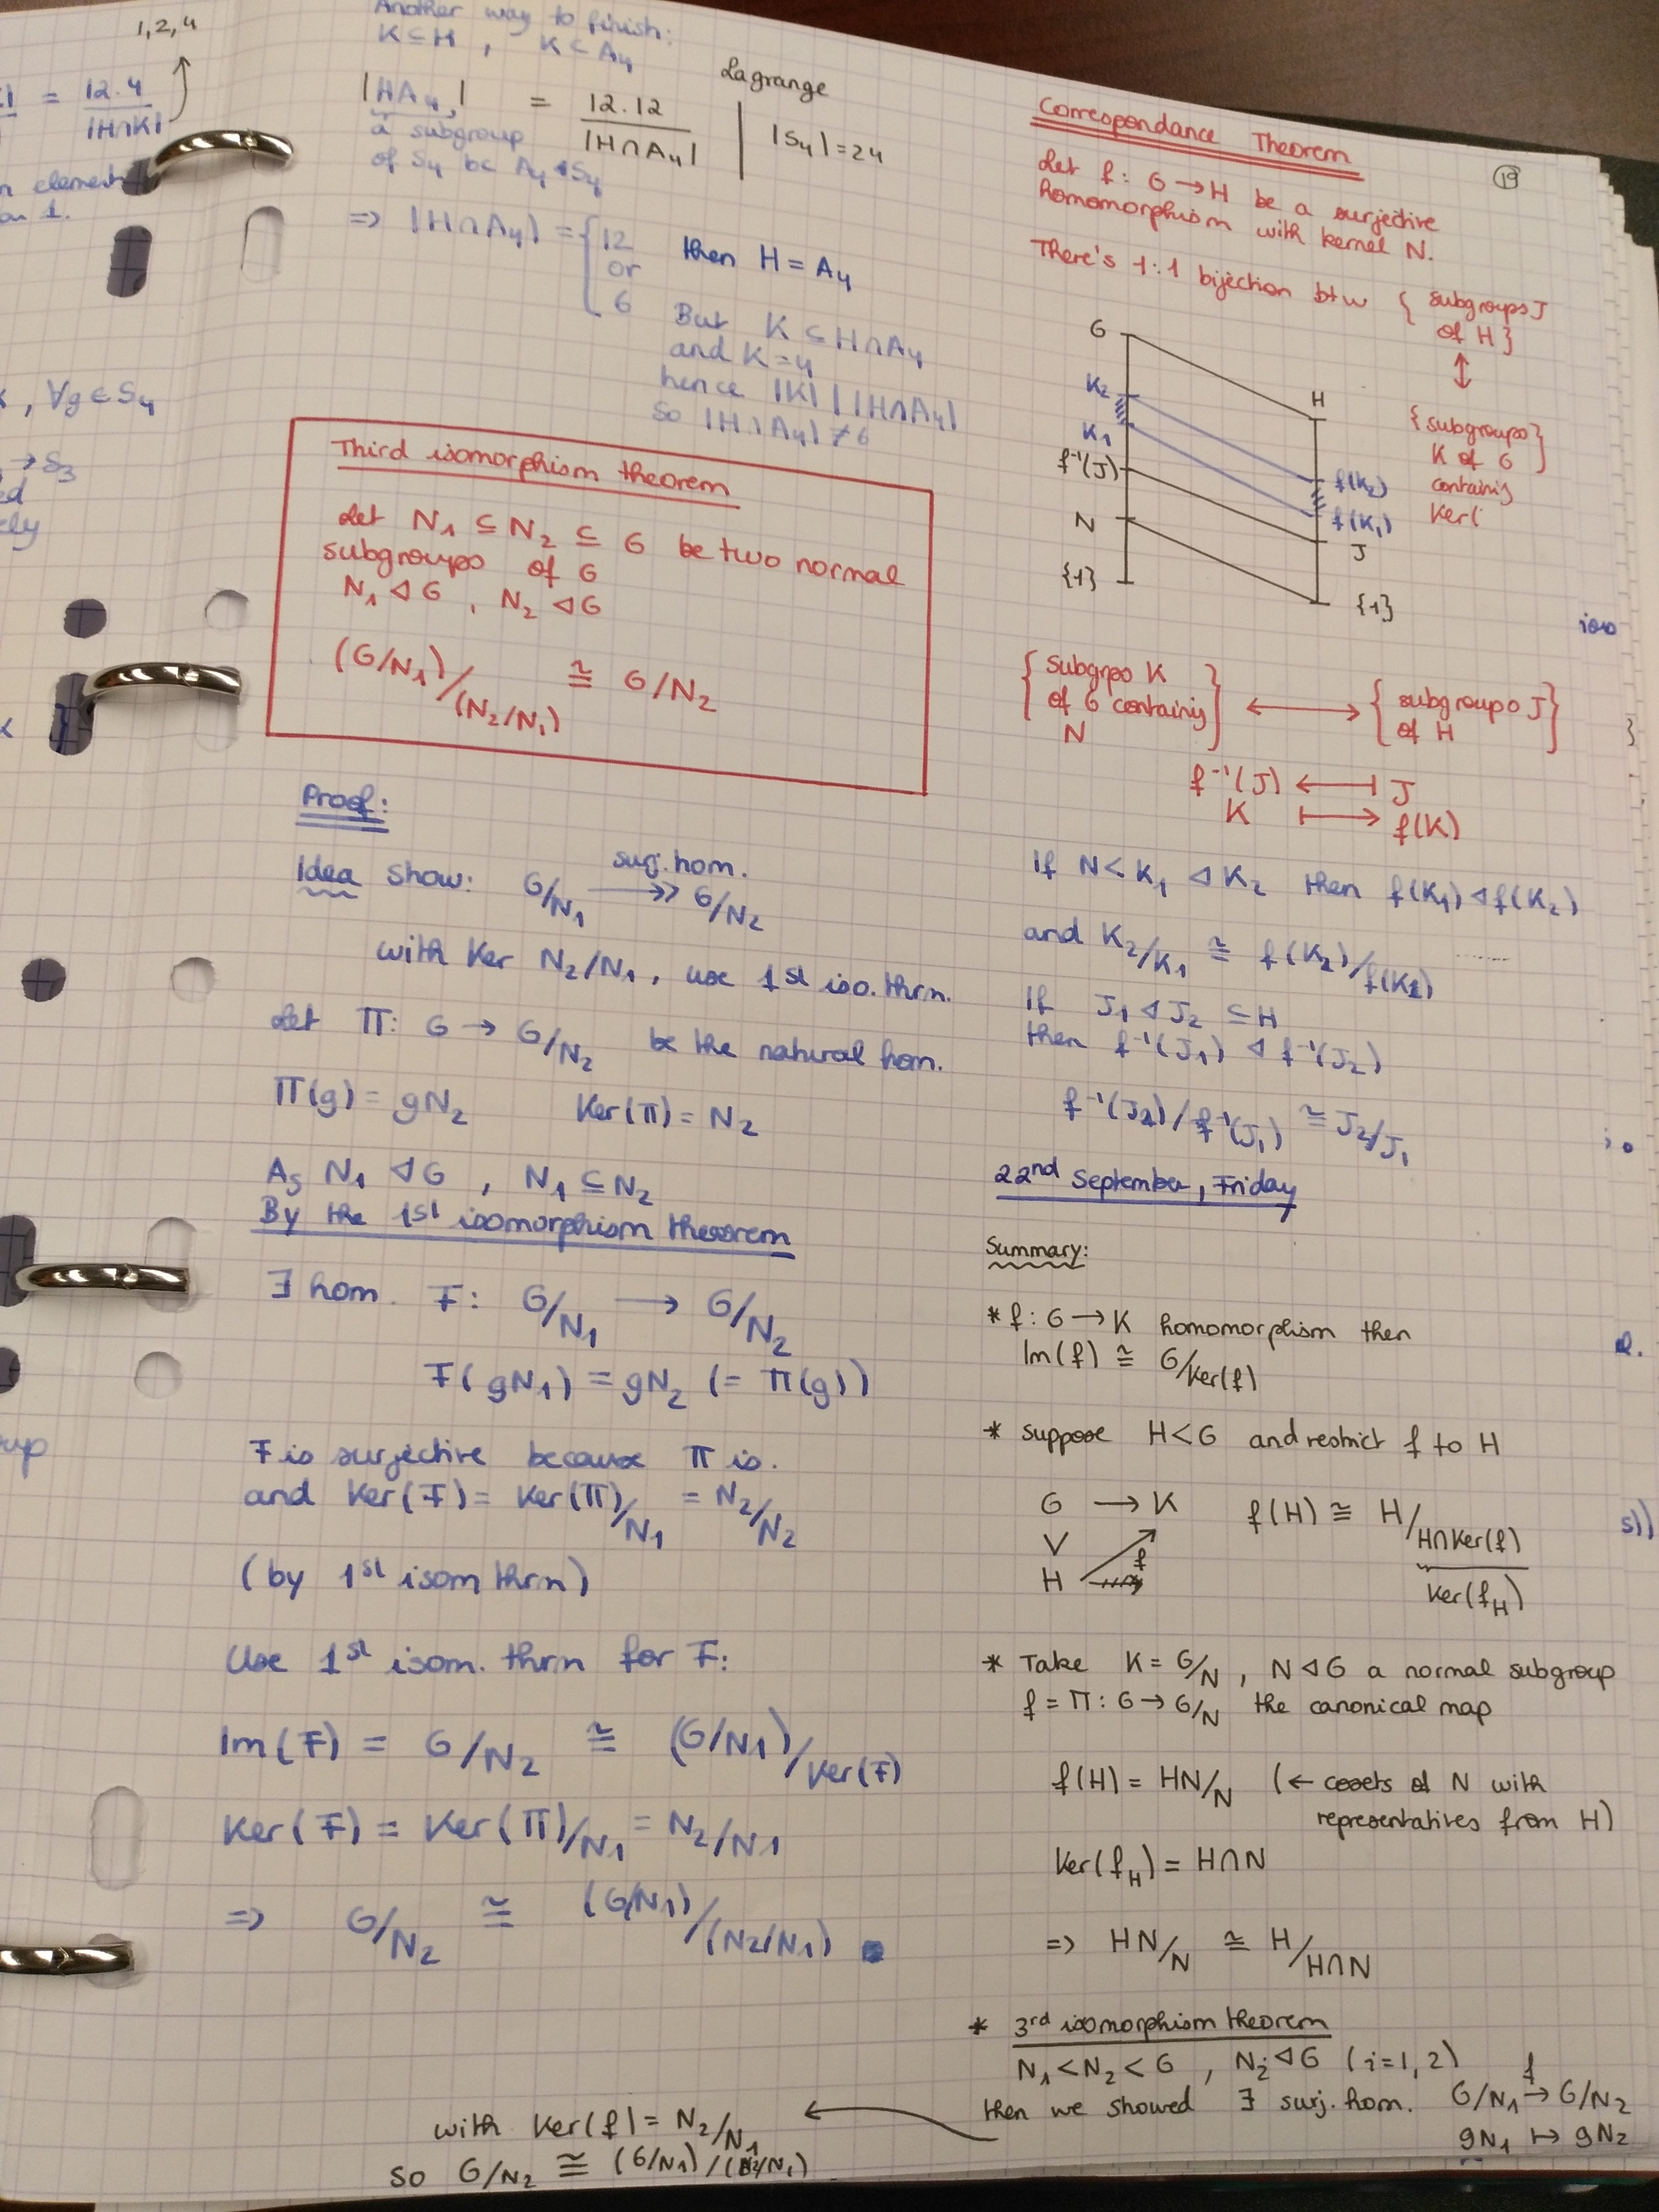 1,2,4
= 12.4 / |H∩K|
n element
on 1.
, ∀g ∈ S₄
→ S₃
ed
ely
oup
Another way to finish:
K ⊆ H , K ⊂ A₄
Lagrange
|HA₄| = 12.12 / |H∩A₄| | |S₄| = 24
a subgroup
of S₄ bc A₄ ◁ S₄
=> |H∩A₄| = { 12 then H = A₄
or
6 But K ⊆ H∩A₄
and K = 4
hence |K| | |H∩A₄|
so |H∩A₄| ≠ 6
Third isomorphism theorem
Let N₁ ⊆ N₂ ⊆ G be two normal
subgroups of G
N₁ ◁ G , N₂ ◁ G
(G/N₁)/(N₂/N₁) ≅ G/N₂
Proof:
Idea show: G/N₁ ↠ G/N₂ surj. hom.
with Ker N₂/N₁, use 1st iso. thrm.
Let Π: G → G/N₂ be the natural hom.
Π(g) = gN₂ Ker(Π) = N₂
As N₁ ◁ G , N₁ ⊆ N₂
By the 1st isomorphism theorem
∃ hom. F: G/N₁ → G/N₂
F(gN₁) = gN₂ (= Π(g))
F is surjective because Π is.
and Ker(F) = Ker(Π)/N₁ = N₂/N₂
(by 1st isom thrm)
Use 1st isom. thrm for F:
Im(F) = G/N₂ ≅ (G/N₁)/Ker(F)
Ker(F) = Ker(Π)/N₁ = N₂/N₁
=> G/N₂ ≅ (G/N₁)/(N₂/N₁)
with Ker(f) = N₂/N₁
so G/N₂ ≅ (G/N₁)/(N₂/N₁)
19
Correspondance Theorem
Let f: G → H be a surjective
homomorphism with kernel N.
There's 1:1 bijection btw { subgroups J
of H }
↕
{subgroups}
K of G
containing
Ker(
G
K₂
K₁
f⁻¹(J)
N
{1}
H
f(K₂)
f(K₁)
J
{1}
{ subgrps K
of G containing
N } ↔ { subgroups J
of H }
f⁻¹(J) ⟻ J
K ⟼ f(K)
If N < K₁ ◁ K₂ then f(K₁) ◁ f(K₂)
and K₂/K₁ ≅ f(K₂)/f(K₁)
If J₁ ◁ J₂ ⊆ H
then f⁻¹(J₁) ◁ f⁻¹(J₂)
f⁻¹(J₂)/f⁻¹(J₁) ≅ J₂/J₁
22nd September, Friday
Summary:
* f: G → K homomorphism then
Im(f) ≅ G/Ker(f)
* suppose H < G and restrict f to H
G → K f(H) ≅ H/H∩Ker(f)
V
H f Ker(f_H)
* Take K = G/N , N ◁ G a normal subgroup
f = Π: G → G/N the canonical map
f(H) = HN/N (← cosets of N with
representatives from H)
Ker(f_H) = H∩N
=> HN/N ≅ H/H∩N
* 3rd isomorphism theorem
N₁ < N₂ < G , Nᵢ ◁ G (i=1,2)
then we showed ∃ surj. hom. G/N₁ →f G/N₂
gN₁ ↦ gN₂